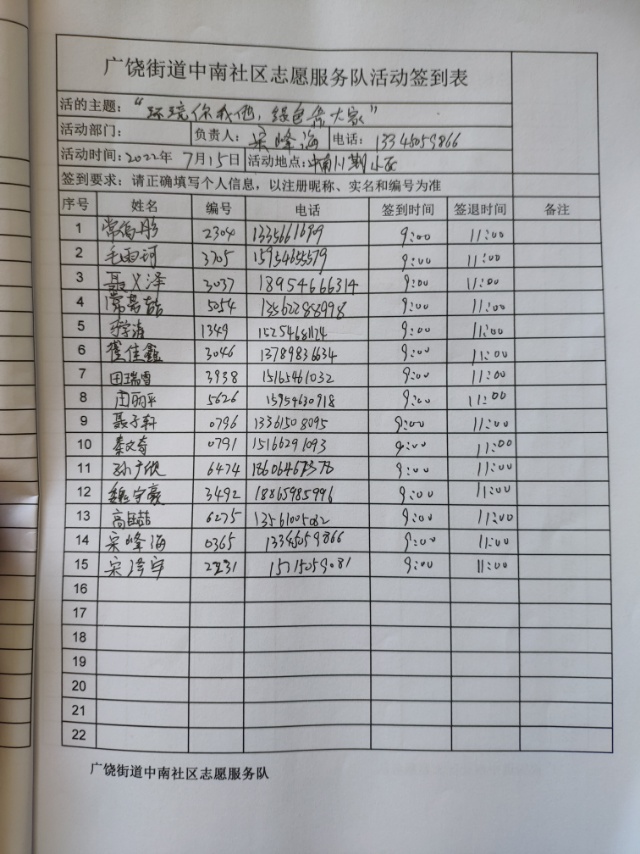 广饶街道中南社区志愿服务队活动签到表
活的主题：“环境你我他，绿色靠大家”
活动部门： 负责人：宋峰海 电话：13345059866
活动时间：2022年7月15日 活动地点：中南小区
签到要求：请正确填写个人信息，以注册昵称、实名和编号为准
序号 姓名 编号 电话 签到时间 签退时间 备注
1 2304 9:00 11:00
2 毛雨珂 3705 9:00 11:00
3 聂义泽 3037 18954666314 9:00 11:00
4 5054 13562288998 9:00 11:00
5 1349 9:00 11:00
6 翟佳鑫 3046 13789836634 9:00 11:00
7 田瑞雪 3938 15165461032 9:00 11:00
8 5626 15954630918 9:00 11:00
9 聂子轩 0796 13361508095 9:00 11:00
10 秦文奇 0791 15166291093 9:00 11:00
11 6474 9:00 11:00
12 魏宇豪 3492 18865985996 9:00 11:00
13 6275 13561005082 9:00 11:00
14 宋峰海 0365 13345059866 9:00 11:00
15 宋泽宇 15715059081 9:00 11:00
16
17
18
19
20
21
22
广饶街道中南社区志愿服务队